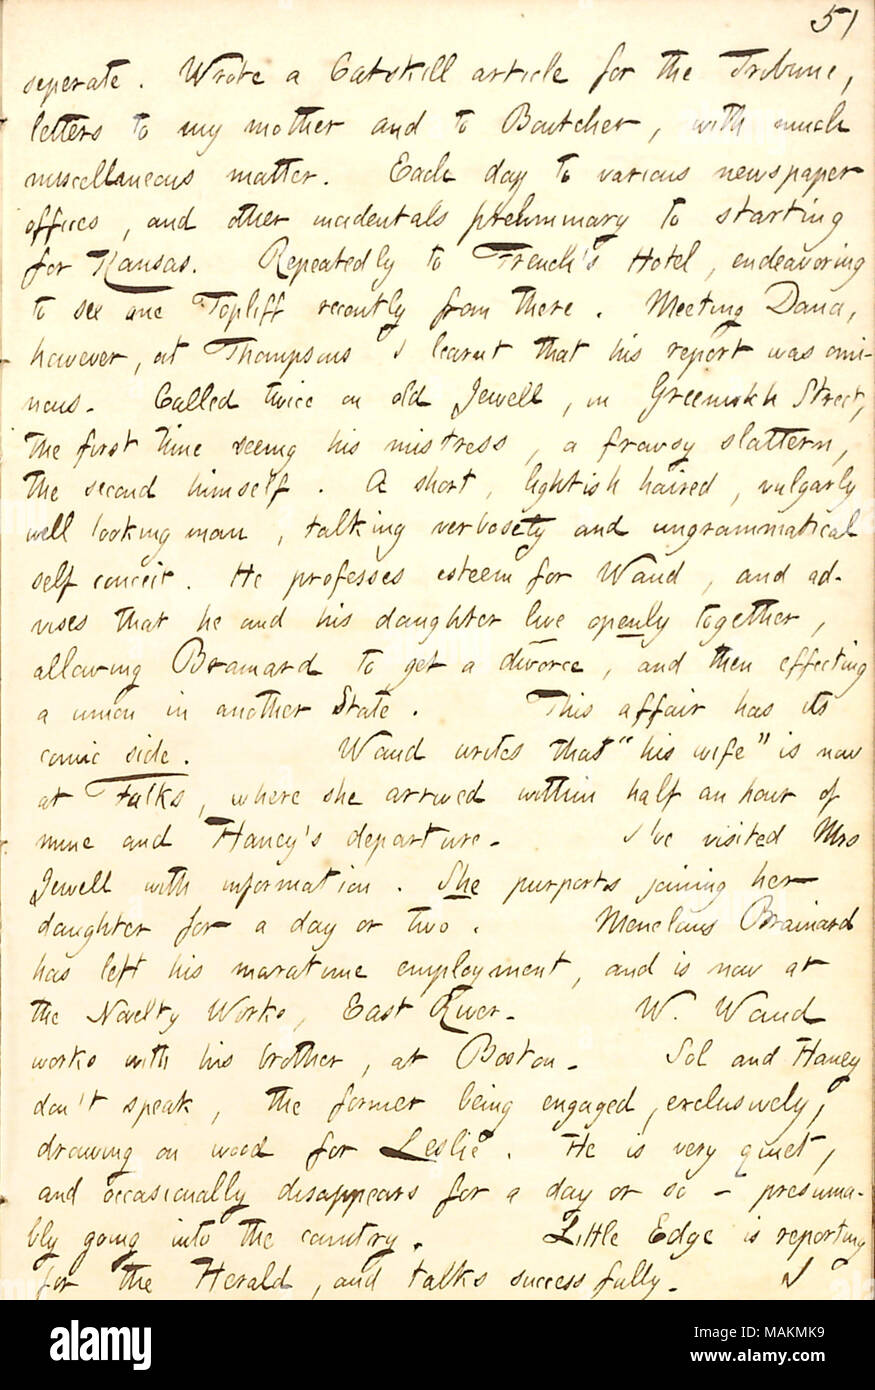 51
seperate. Wrote a Catskill article for the Tribune,
letters to my mother and to Boutcher, with much
miscellaneous matter. Each day to various newspaper
offices, and other incidentals preliminary to starting
for Kansas. Repeatedly to French's Hotel, endeavoring
to see one Topliff recently from there. Meeting Dana,
however, at Thompsons I learnt that his report was omi-
nous. Called twice on old Jewell, in Greenwich Street,
the first time seeing his mistress, a frowsy slattern,
the second himself. A short, lightish haired, vulgarly
well looking man, talking verbosety and ungrammatical
self conceit. He professes esteem for Waud, and ad-
vises that he and his daughter live openly together,
allowing Brainard to get a divorce, and then effecting
a union in another State. This affair has its
comic side. Waud writes that "his wife" is now
at Falks, where she arrived within half an hour of
mine and Haney's departure. I've visited Mrs
Jewell with information. She purports joining her
daughter for a day or two. Menelaus Brainard
has left his maratime employment, and is now at
the Novelty Works, East River. W. Waud
works with his brother, at Boston. Sol and Haney
don't speak, the former being engaged, exclusively,
drawing on wood for Leslie. He is very quiet,
and occasionally disappears for a day or so - presuma-
bly going into the country. Little Edge is reporting
for the Herald, and talks successfully. I
alamy
Image ID: MAKMK9
www.alamy.com